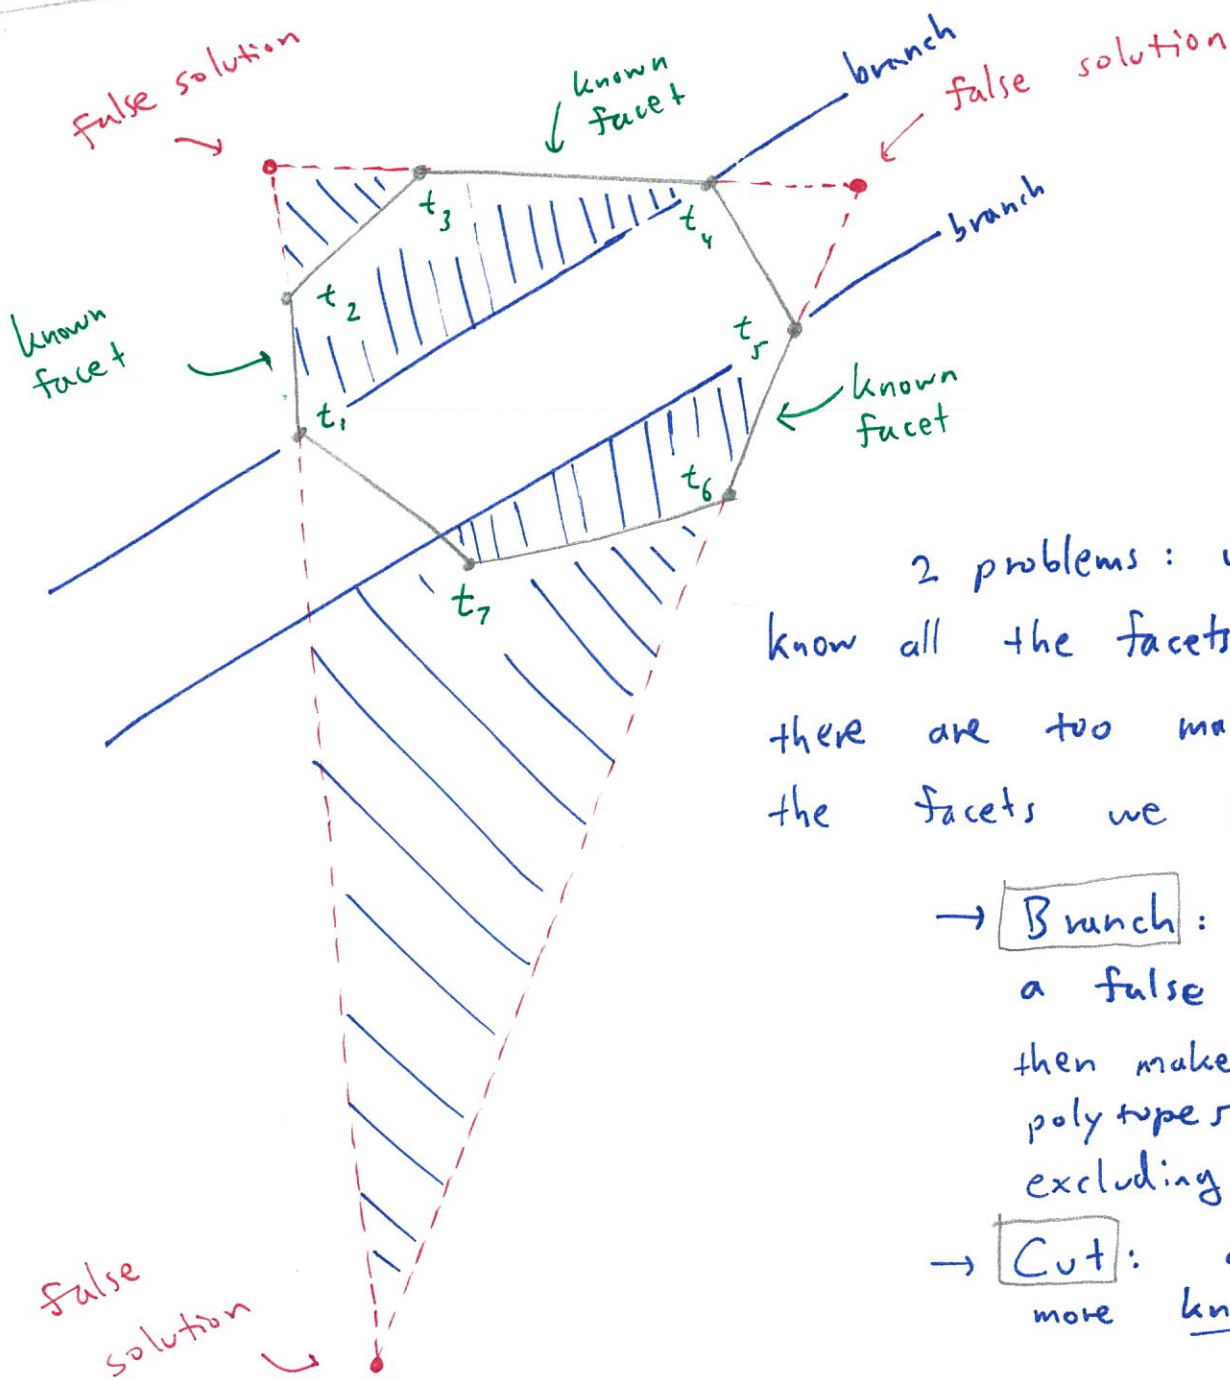 false solution
known
facet
branch
false solution
branch
t3
t4
t2
known
facet
t1
t5
known
facet
t6
t7
2 problems:
know all the facets
there are too
the facets we
→ Branch:
a false
then make
polytopes
excluding
→ Cut:
more
false
solution